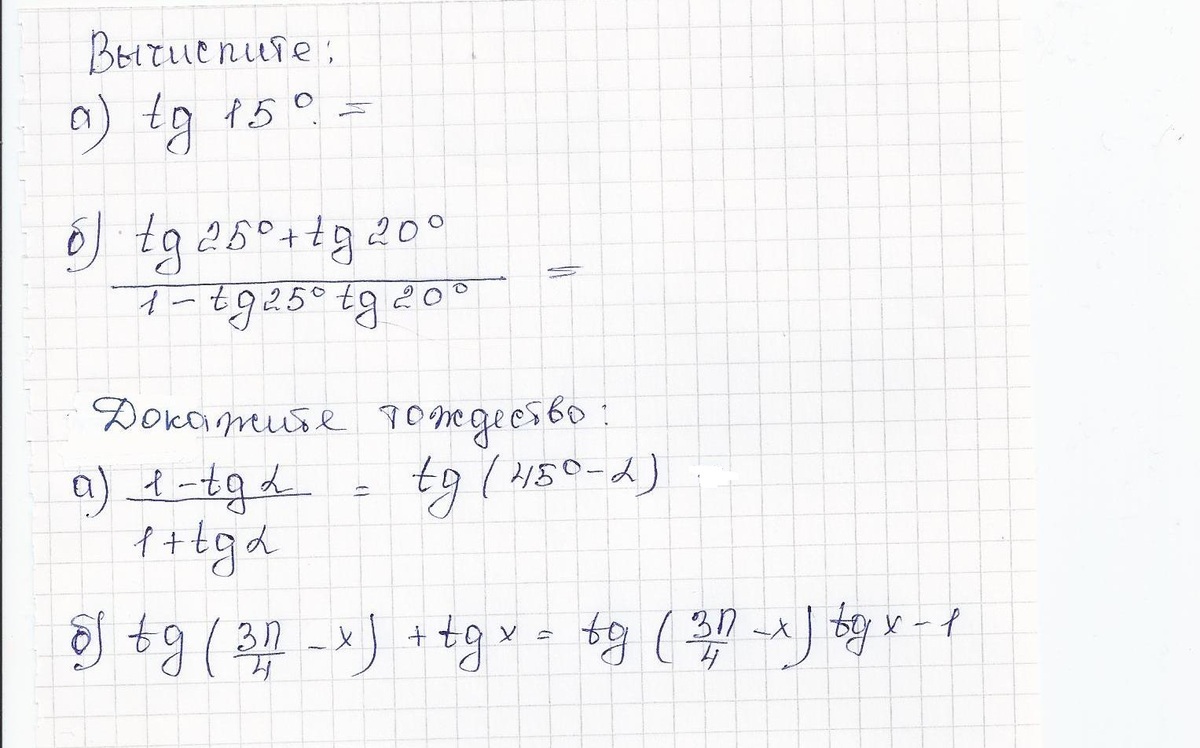 Вычислите:
а) tg 15° =
б) tg 25° + tg 20°
1 - tg 25° tg 20° =
Докажите тождество:
а) 1 - tg α = tg (45° - α)
1 + tg α
б) tg (3π/4 - x) + tg x = tg (3π/4 - x) tg x - 1